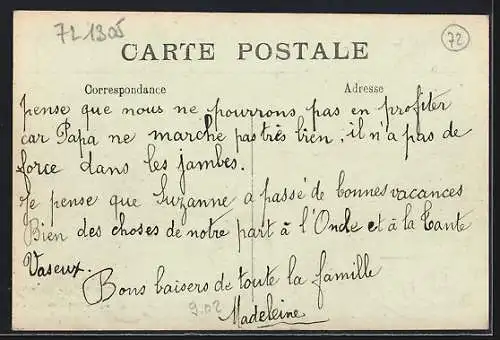 7L1305
72
CARTE POSTALE
Correspondance
Adresse
pense que nous ne pourrons pas en profiter
car Papa ne marche pas très bien, il n'a pas de
force dans les jambes.
Je pense que Suzanne a passé de bonnes vacances
Bien des choses de notre part à l'Oncle et à la Tante
Vaseux.
Bons baisers de toute la famille
9.02
Madeleine